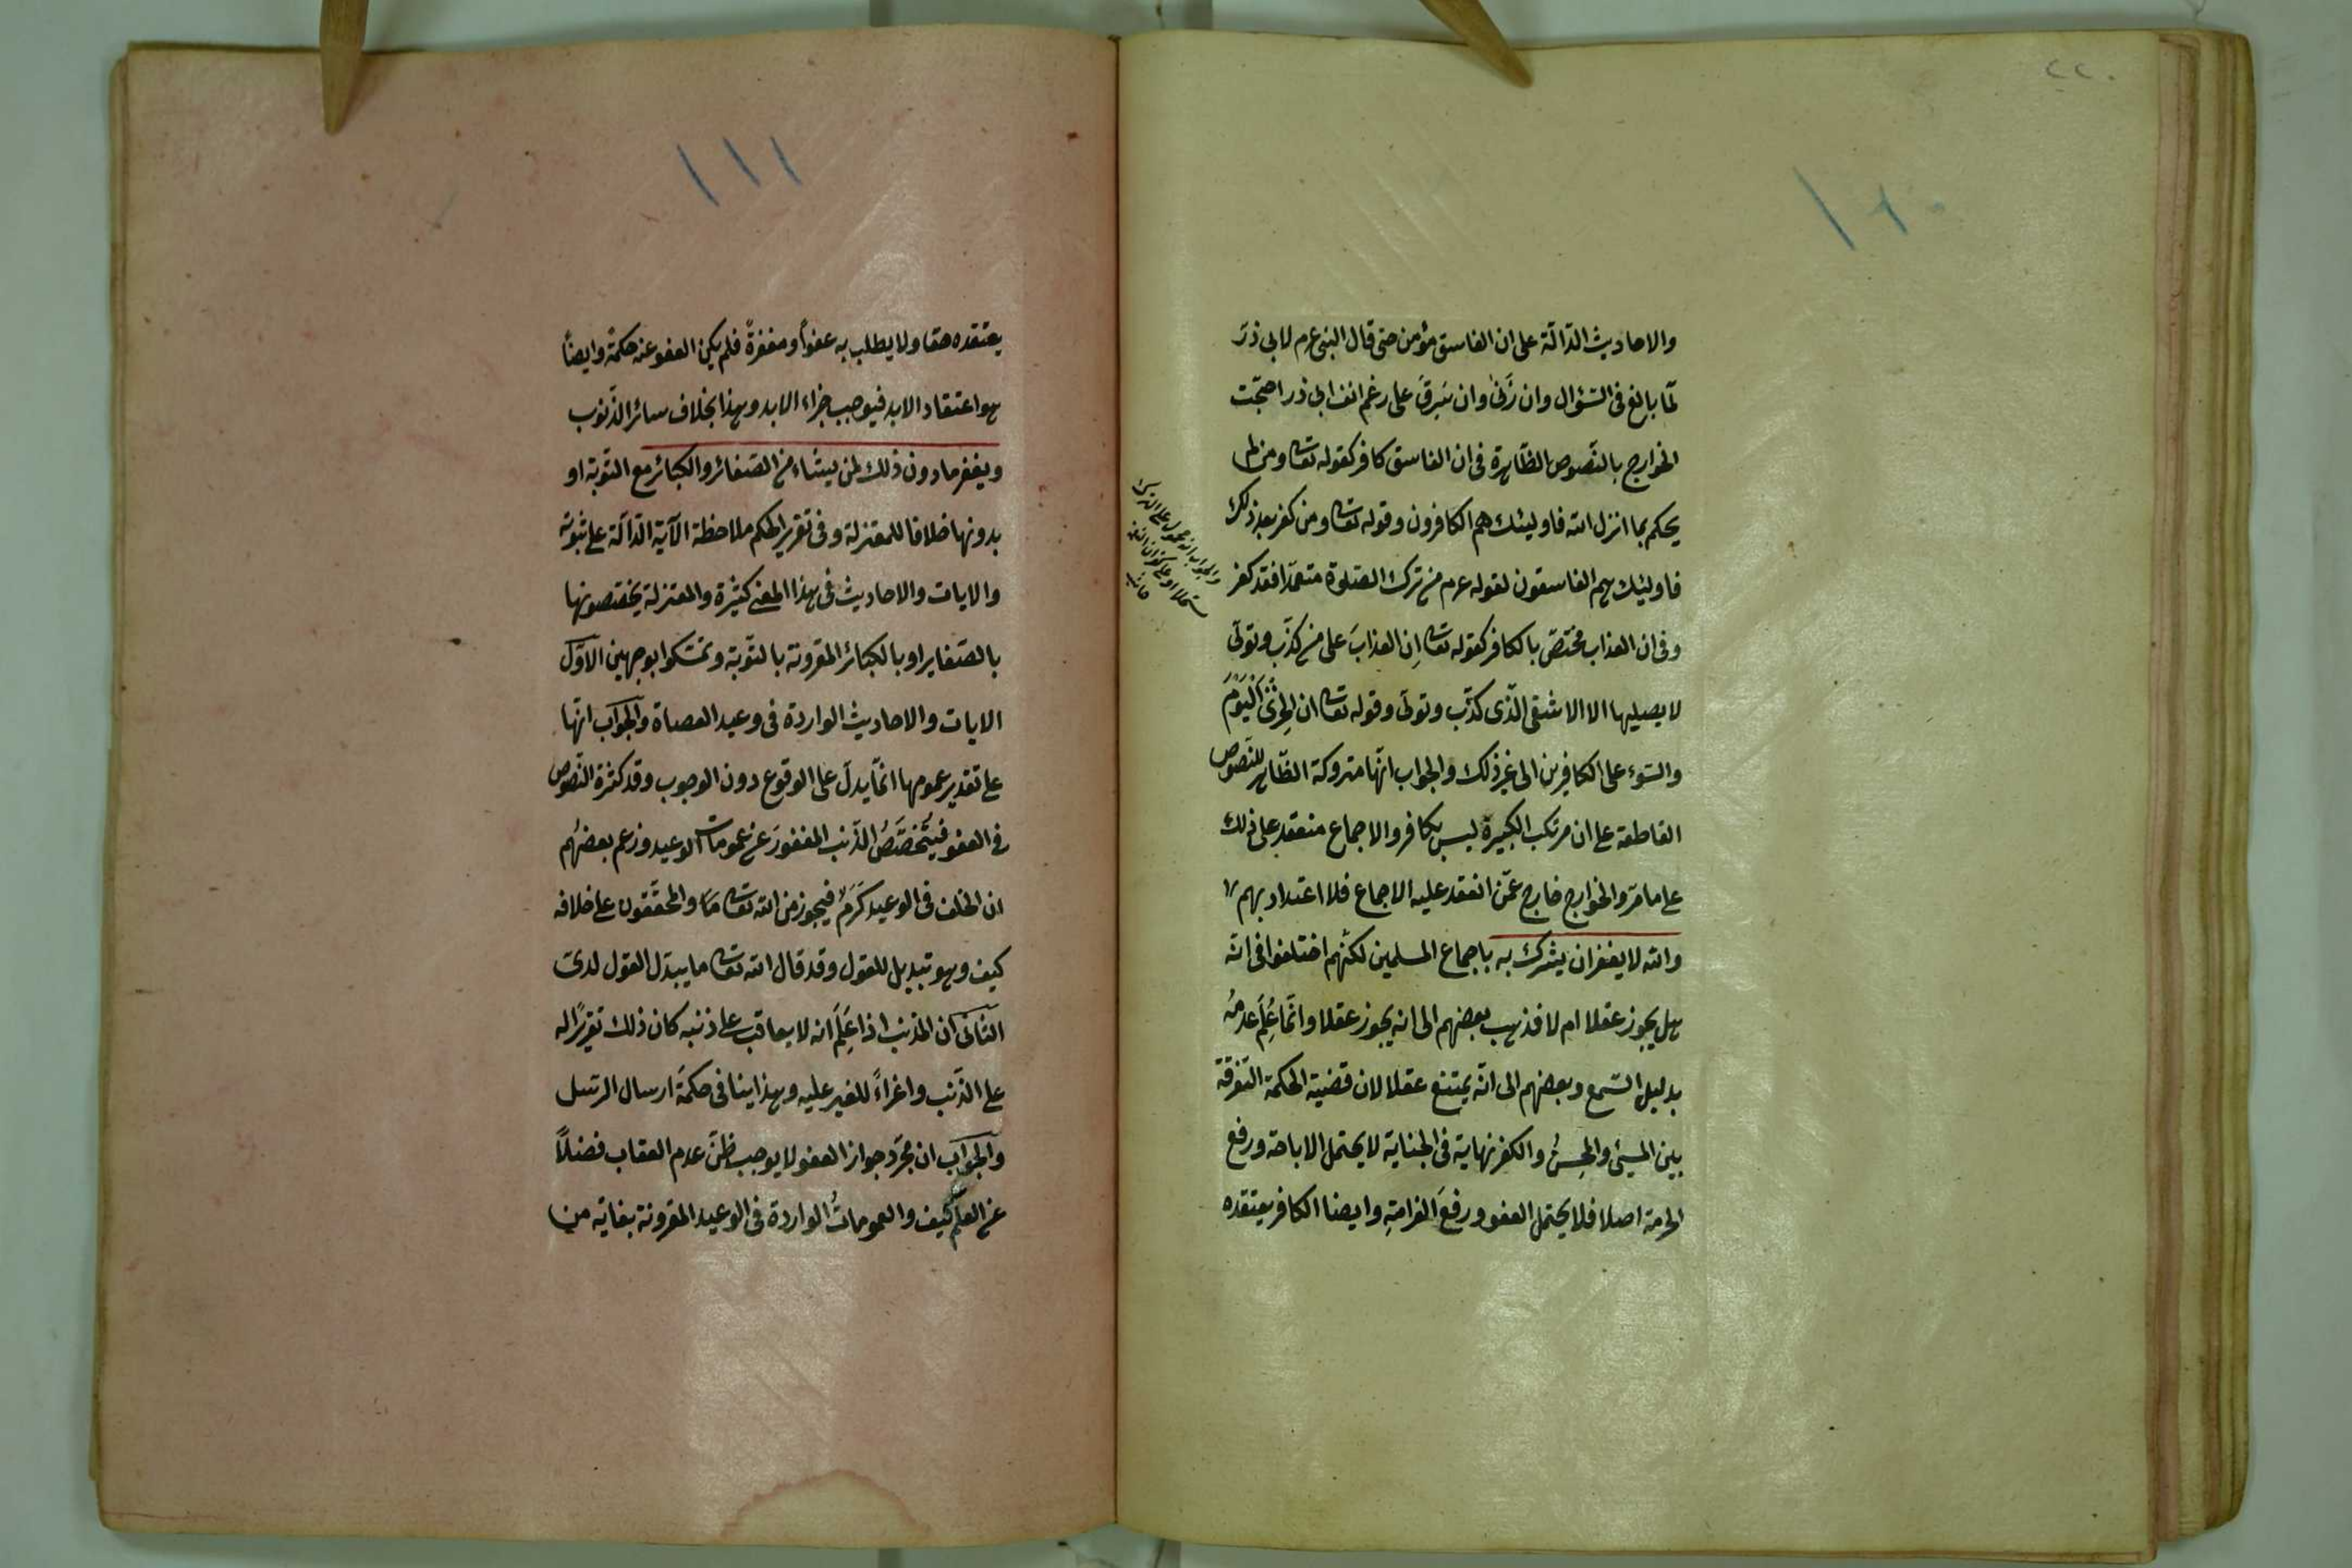 ٢٢٠
١١٠
والاحاديث الدّالّة على ان الفاسق مؤمن حتى قال النبى عم لابى ذرّ
لمّا بالغ فى السّؤال وان زَنىٰ وان سَرقَ على رغم انف ابى ذر احتجّت
الخوارج بالنّصوص الظّاهرة فى ان الفاسق كافر كقوله تعا ومن لم
يحكم بما انزل الله فاولئك هم الكافرون وقوله تعا ومن كفر بعد ذلك
فاولئك هم الفاسقون لقوله عم من ترك الصّلوة متعمّدا فقد كفر
وفى ان العذاب مختصّ بالكافر كقوله تعا اِن العذابَ على من كذّب وتولّى
لا يصليها الا الاشقى الّذى كذّب وتولّى وقوله تعا ان الخزىَ اليَوْمَ
والسّوء على الكافرين الى غير ذلك والجواب انّها متروكة الظّاهر للنّصوص
القاطعة على ان مرتكب الكبيرة ليس بكافر والاجماع منعقد على ذلك
على ما مرّ والخوارج خارج عمّن انعقد عليه الاجماع فلا اعتداد بهم
والله لا يغفر ان يشرك به باجماع المسلمين لكنّهم اختلفوا فى انّه
هل يجوز عقلا ام لا فذهب بعضهم الى انه يجوز عقلا وانّما عُلِمَ عدمُه
بدليل السّمع وبعضهم الى انّه يمتنع عقلا لان قضية الحكمة التفرقة
بين المسيئ والمحسن والكفر نهاية فى الجناية لا يحتمل الاباحة ورفع
الحرمة اصلا فلا يحتمل العفو ورفعَ الغرامةِ وايضا الكافر يعتقده
والجواب انه محمول على الترك
١١١
يعتقده حقا ولا يطلب به عفواً ومغفرةً فلم يكن العفو عنه حكمةً وايضاً
هو اعتقاد الابد فيوجب جزاء الابد وهذا بخلاف سائر الذّنوب
ويغفر ما دون ذلك لمن يشاء من الصّغائر والكبائر مع التّوبة او
بدونها خلافا للمعتزلة وفى تقرير الحكم ملاحظة الآية الدّالّة على ثبوته
والايات والاحاديث فى هذا المعنى كثيرة والمعتزلة يخصّصونها
بالصّغاير او بالكبائر المقرونة بالتّوبة وتمسّكوا بوجهين الاوّل
الايات والاحاديث الواردة فى وعيد العصاة والجواب انّها
على تقدير عمومها انّما يدلّ على الوقوع دون الوجوب وقد كثرة النّصوص
فى العفو فيُخصّصُ الذّنب المغفورَ عن عمومات الوعيد وزعم بعضهُم
ان الخلف فى الوعيد كَرَمٌ فيجوز من الله تعا والمحقّقون على خلافه
كيف وهو تبديل للقول وقد قال الله تعا ما يبدّل القول لدىّ
الثّانى ان المذنب اذا عَلِمَ انه لا يعاقب على ذنبه كان ذلك تقريرًا له
على الذّنب واغراءً للغير عليه وهذا ينافى حكمة ارسال الرّسل
والجواب ان مجرّد جواز العفو لا يوجب ظنّ عدم العقاب فضلاً
عن العلم كيف والعموماتُ الواردة فى الوعيد المقرونة بغاية من